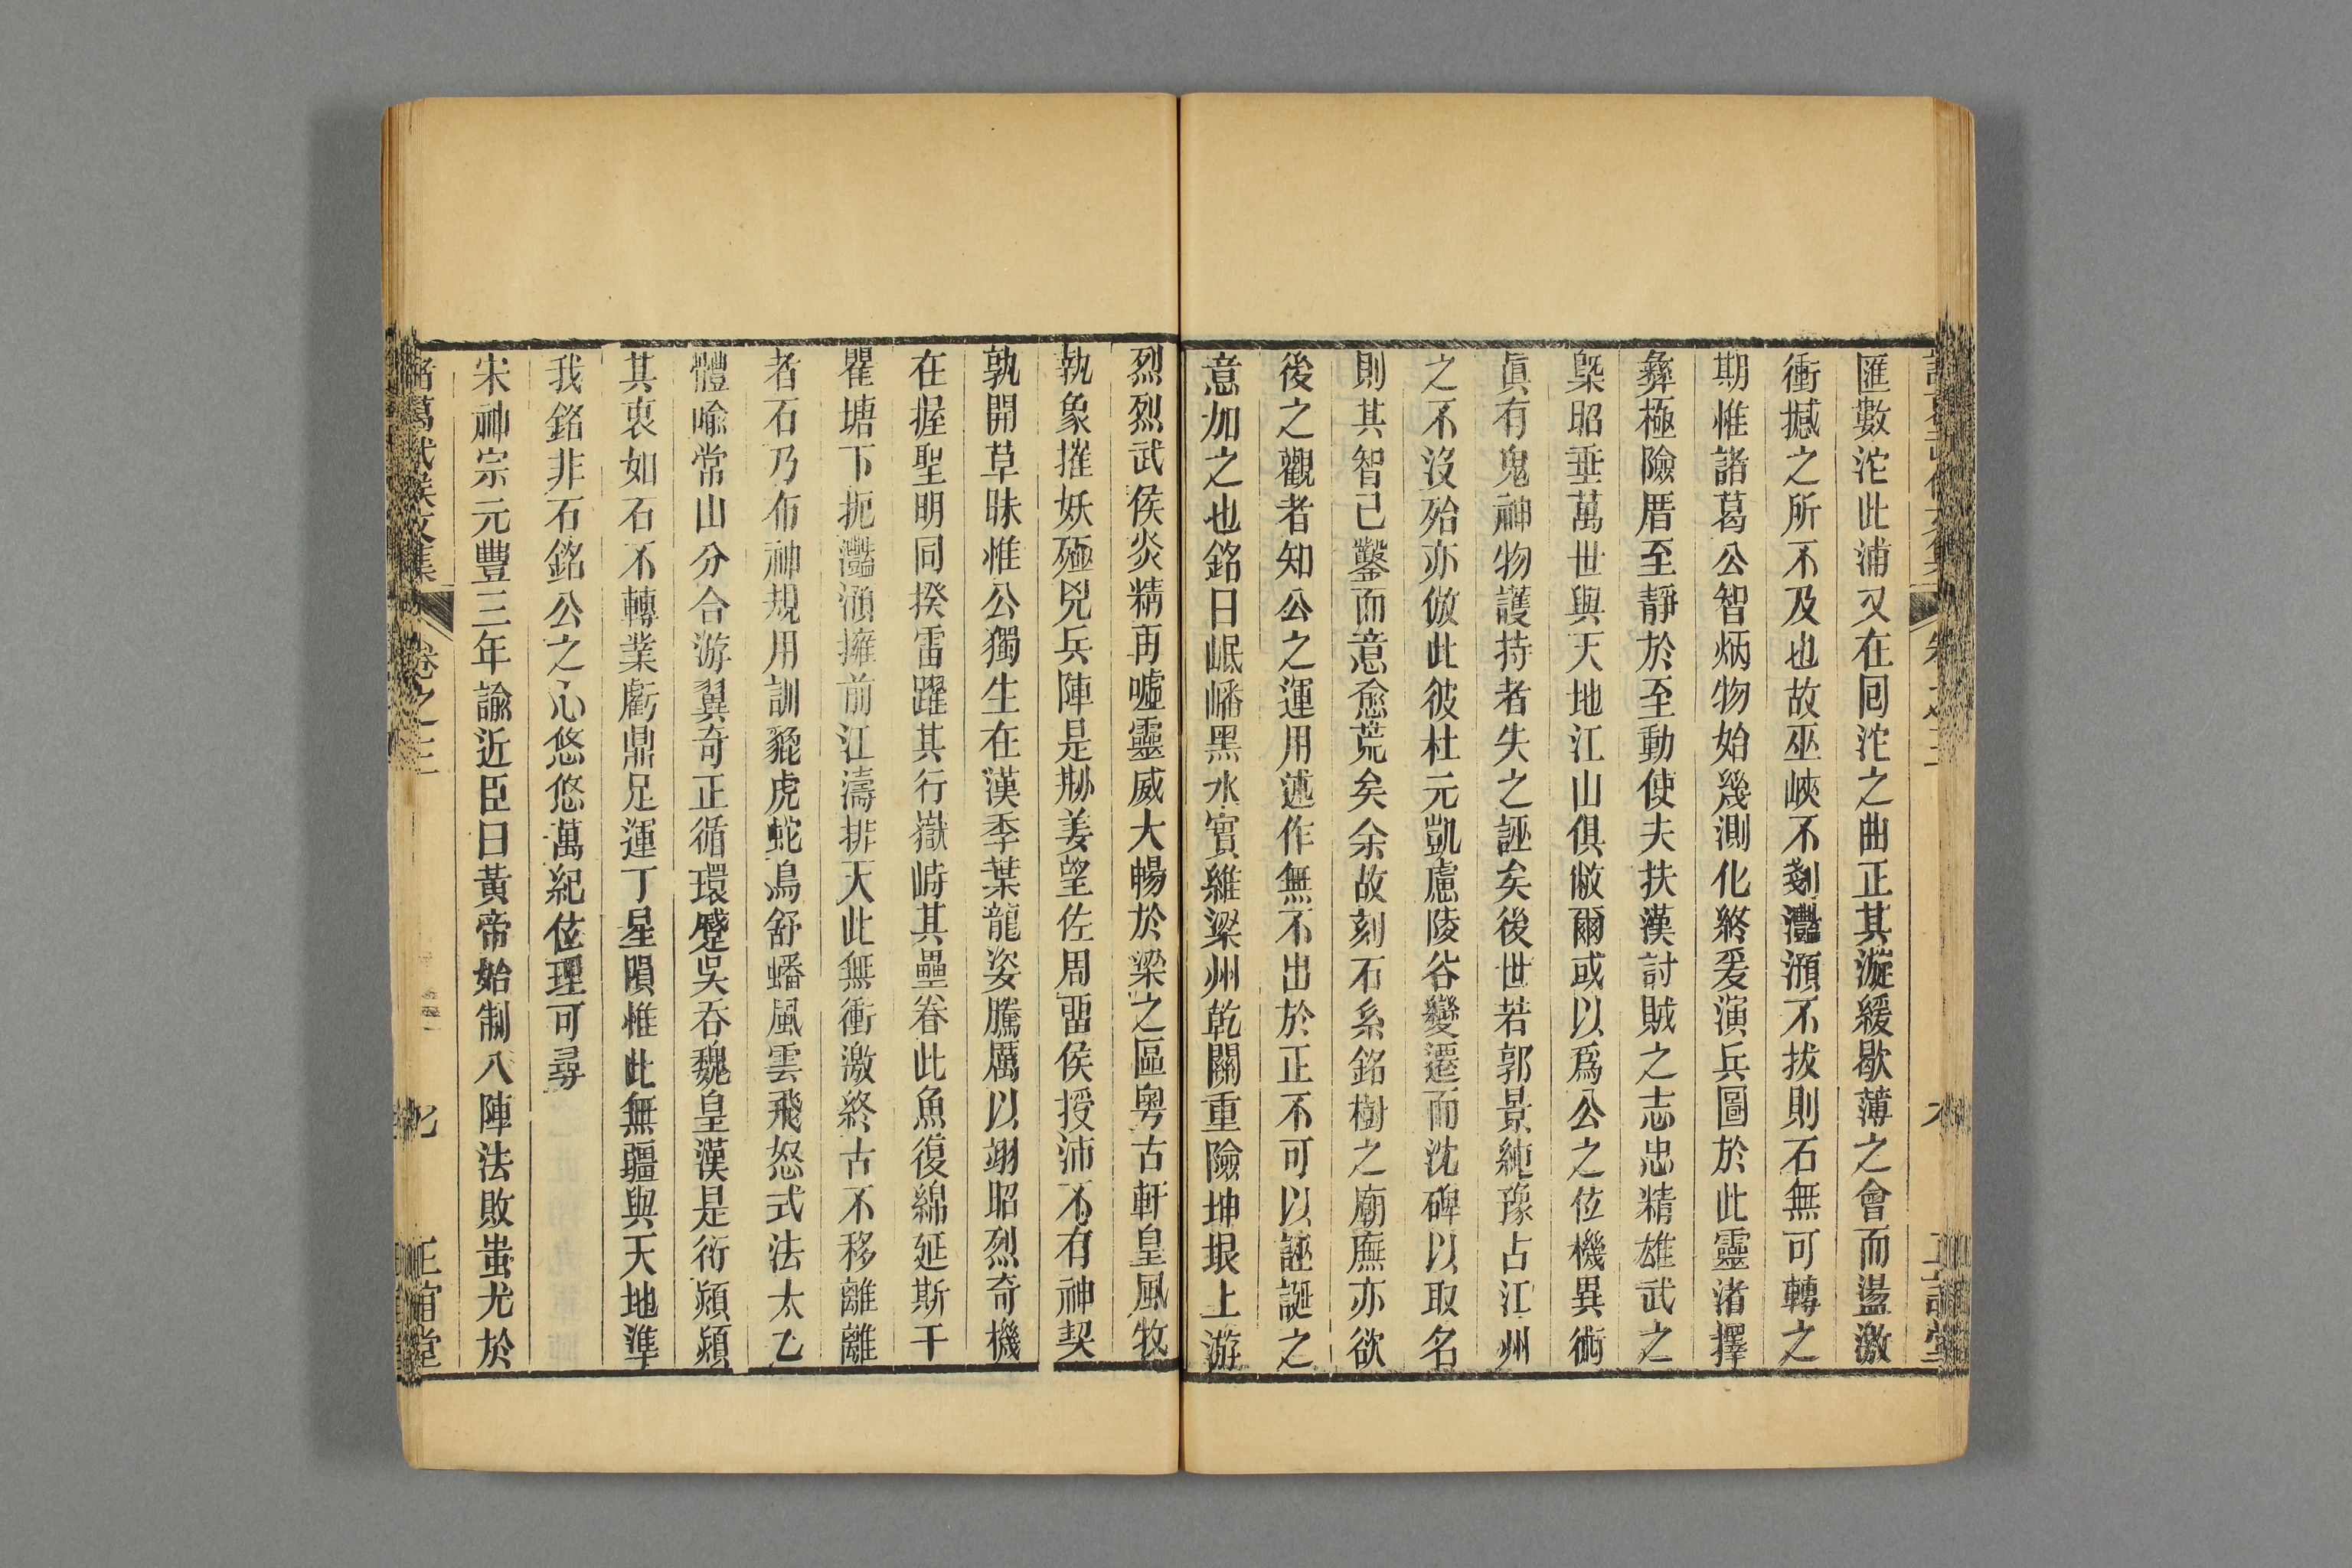 匯數沱此浦又在回沱之曲正其漩緩歇薄之會而盪激
衝撼之所不及也故巫峽不剗灩澦不拔則石無可轉之
期惟諸葛公智炳物始幾測化終爰演兵圖於此靈渚擇
彝極險厝至靜於至動使夫扶漢討賊之志忠精雄武之
槩昭垂萬世與天地江山俱敝爾或以爲公之位機異術
眞有鬼神物護持者失之誣矣後世若郭景純豫占江州
之不沒殆亦倣此彼杜元凱慮陵谷變遷而沈碑以取名
則其智已鑿而意愈荒矣余故刻石系銘樹之廟廡亦欲
後之觀者知公之運用述作無不出於正不可以誣誕之
意加之也銘曰岷嶓黑水實維梁州乾關重險坤垠上游
烈烈武侯炎精再噓靈威大暢於梁之區粤古軒皇風牧
執象摧妖殛兇兵陣是刱姜望佐周畱侯授沛不有神契
孰開草昧惟公獨生在漢季葉龍姿騰厲以翊昭烈奇機
在握聖明同揆雷躍其行嶽峙其壘眷此魚復綿延斯干
瞿塘下扼灩澦擁前江濤排天此無衝激終古不移離離
者石乃布神規用訓貔虎蛇鳥舒蟠風雲飛怒式法太乙
體喻常山分合游翼奇正循環蹙吳吞魏皇漢是衍潁潁
其衷如石不轉業虧鼎足運丁星隕惟此無疆與天地準
我銘非石銘公之心悠悠萬紀位理可尋
宋神宗元豐三年諭近臣曰黃帝始制八陣法敗蚩尤於
諸葛武侯文集 卷之三 九 正誼堂